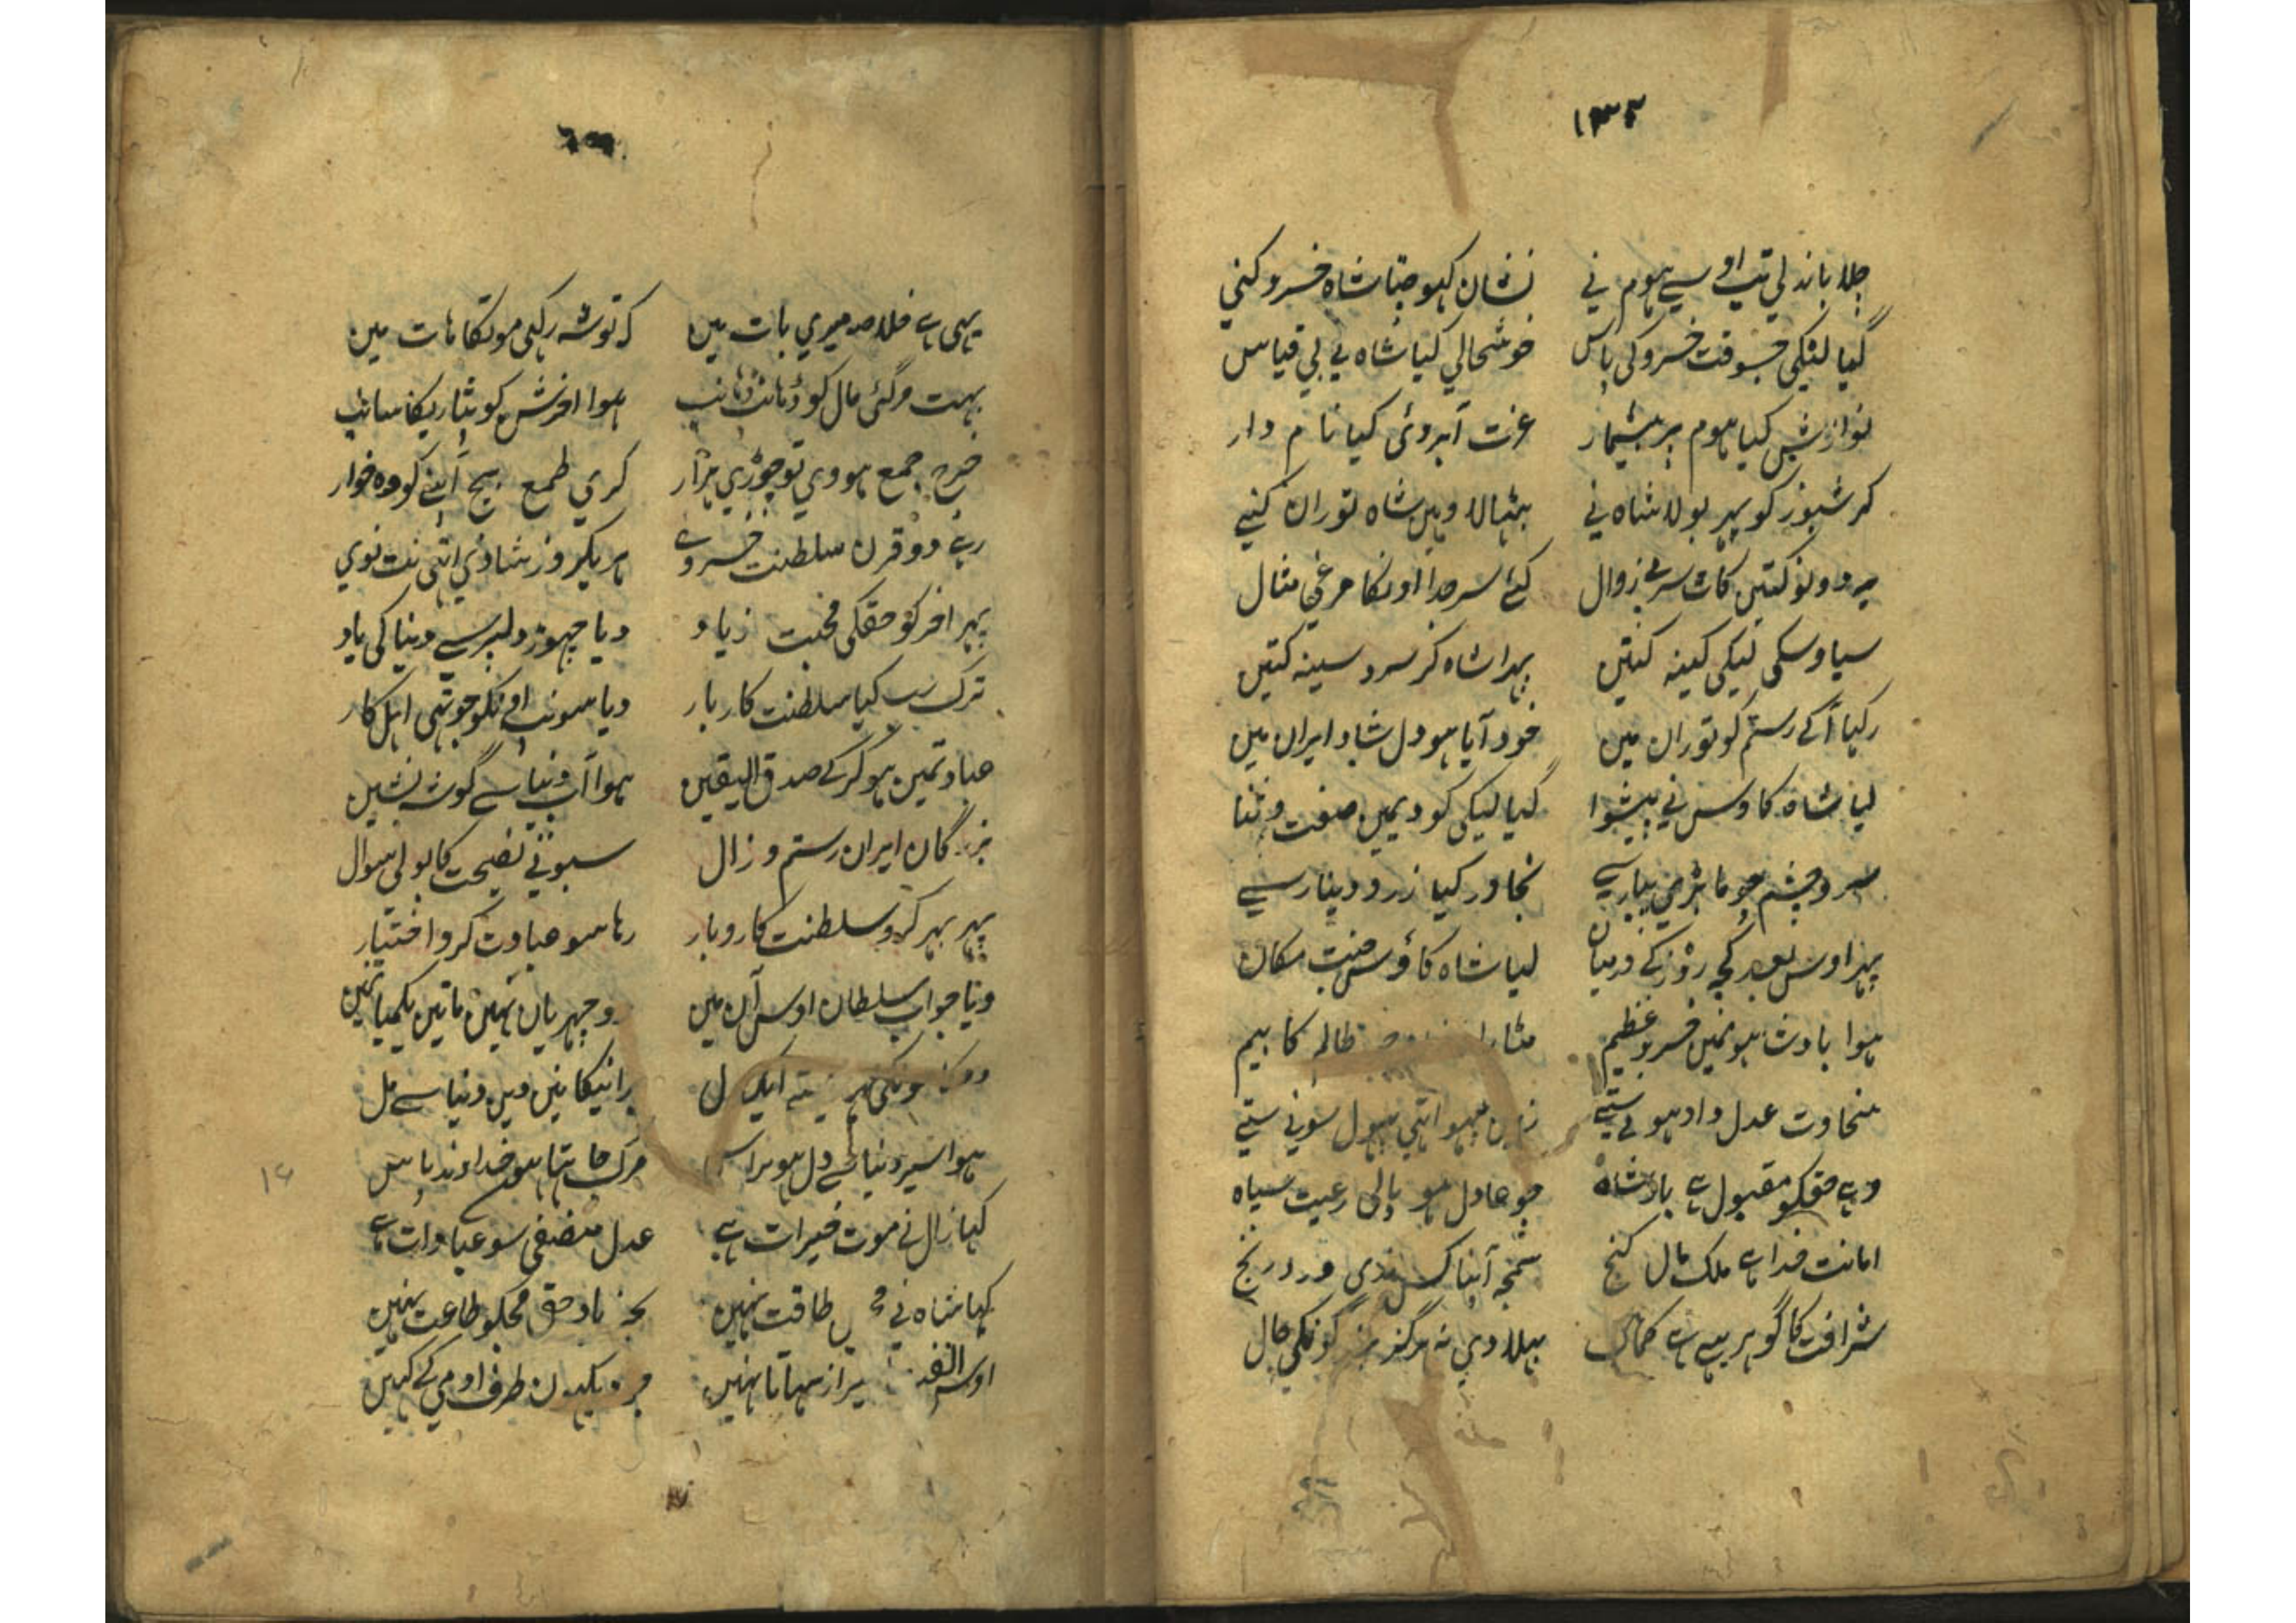 ۱۳۲
چلا باندلی تب اوسے ہوم نی نشان کہو جتا شاہ خسرو کنی
گیا لیکی جسوقت خسرو کی پاس خوشحالی کیا شاہ نی بی قیاس
نوازش کیا ہوم پر بیشمار عزت آبروئی کیا نام دار
کرشیوز کو پہر بولا شاہ نی بٹہالا وہیں شاہ توران کنے
یہ دونو کتیں کاٹ سر بے زوال کئے سر جدا اونکا مرغی مثال
سیاوسکی لیکی کینہ کتیں پہرا شاہ کر سرد سینہ کتیں
رکہا آگے رستم کو توران میں خود آیا ہو دل شاد ایران میں
لیا شاہ کاوس نی پیشوا گیا لیکی کو دیمیں صفت و ثنا
سر و چشم چوما پیارسے نچاور کیا زر و دینارسے
پہر اوس بعد کچہ روز کے درمیان لیا شاہ کاؤس جنت مکان
ہوا بادشاہونمیں خسرو عظیم ظالم کا بیم
سخاوت عدل داد ہوتے ستیے بہول سونے ستیے
وہے حقکو مقبول ہے بادشاہ جو عادل ہو پالی رعیت سپاہ
امانت خدا ہے ملک مال گنج سمجہ آپنا درد رنج
شرافت کا گوہر یہے ہے کمال بہلادی نہ ہرگز کونکی حال
یہی ہے خلاصہ میری بات میں کہ توشہ رکہی موتکا ہات میں
بہت مرگئی مال کو ڈہانپ ڈہانپ ہوا اخرش کو بٹاریکا سانپ
خرچ جمع ہووی تو چوڑی ہزار کری طمع بیچ آپنے کو وہ خوار
رہے دو قرن سلطنت خسروے ہریکروز شادی اتہی نت نوی
پہر اخر کو حقکی محبت زیاد دیا چہوڑ دلپرسے دنیا کی یاد
ترک سب کیا سلطنت کاربار دیا سونپ اونکو جو تہی اہل کار
عبادتمین ہو کرکے صدق الیقین ہوا آپ دنیا سے گوشہ نشین
بزرگان ایران رستم و زال سبونی نصیحت کا بولی سوال
پہر بہر کرو سلطنت کاروبار رہا سو عبادت کرو اختیار
دیا جواب سلطان اوس آن میں وجہر بان نہیں ماتیں یکمیانمیں
ایک دل برانیکا نیں دین دنیا سے مل
ہوا سیر دنیا سے دل مرگ چاہتا ہوں خداوند پاس
کہا زال نے موت خیرات ہے عدل منصفی سو عبادات ہے
کہا شاہ نے طاقت نہیں بجز یاد حق مجکو طاعت نہیں
اوس سہاتا نہیں طرف اومی کے کہیں
۱۶